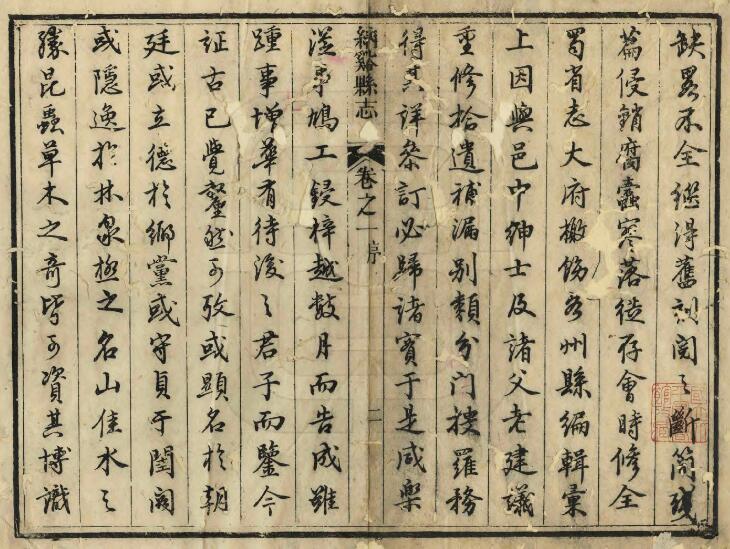 缺畧不全継得舊刻閲之斷简殘
篇侵銷腐蠹寥落徙存會時修全
蜀省志大府檄飭各州縣編輯彙
上因與邑中紳士及諸父老建議
重修拾遺補漏别類分門搜羅務
得其詳叅訂必歸諸實于是咸樂
納谿縣志 卷之一 序 二
從事鳩工鋟梓越數月而告成雖
踵事增華有待後之君子而鑒今
証古已覺犁然可攷或顯名於朝
廷或立德於鄉黨或守貞于閨閫
或隱逸於林泉極之名山佳水之
緣昆蟲草木之奇皆可資其博識